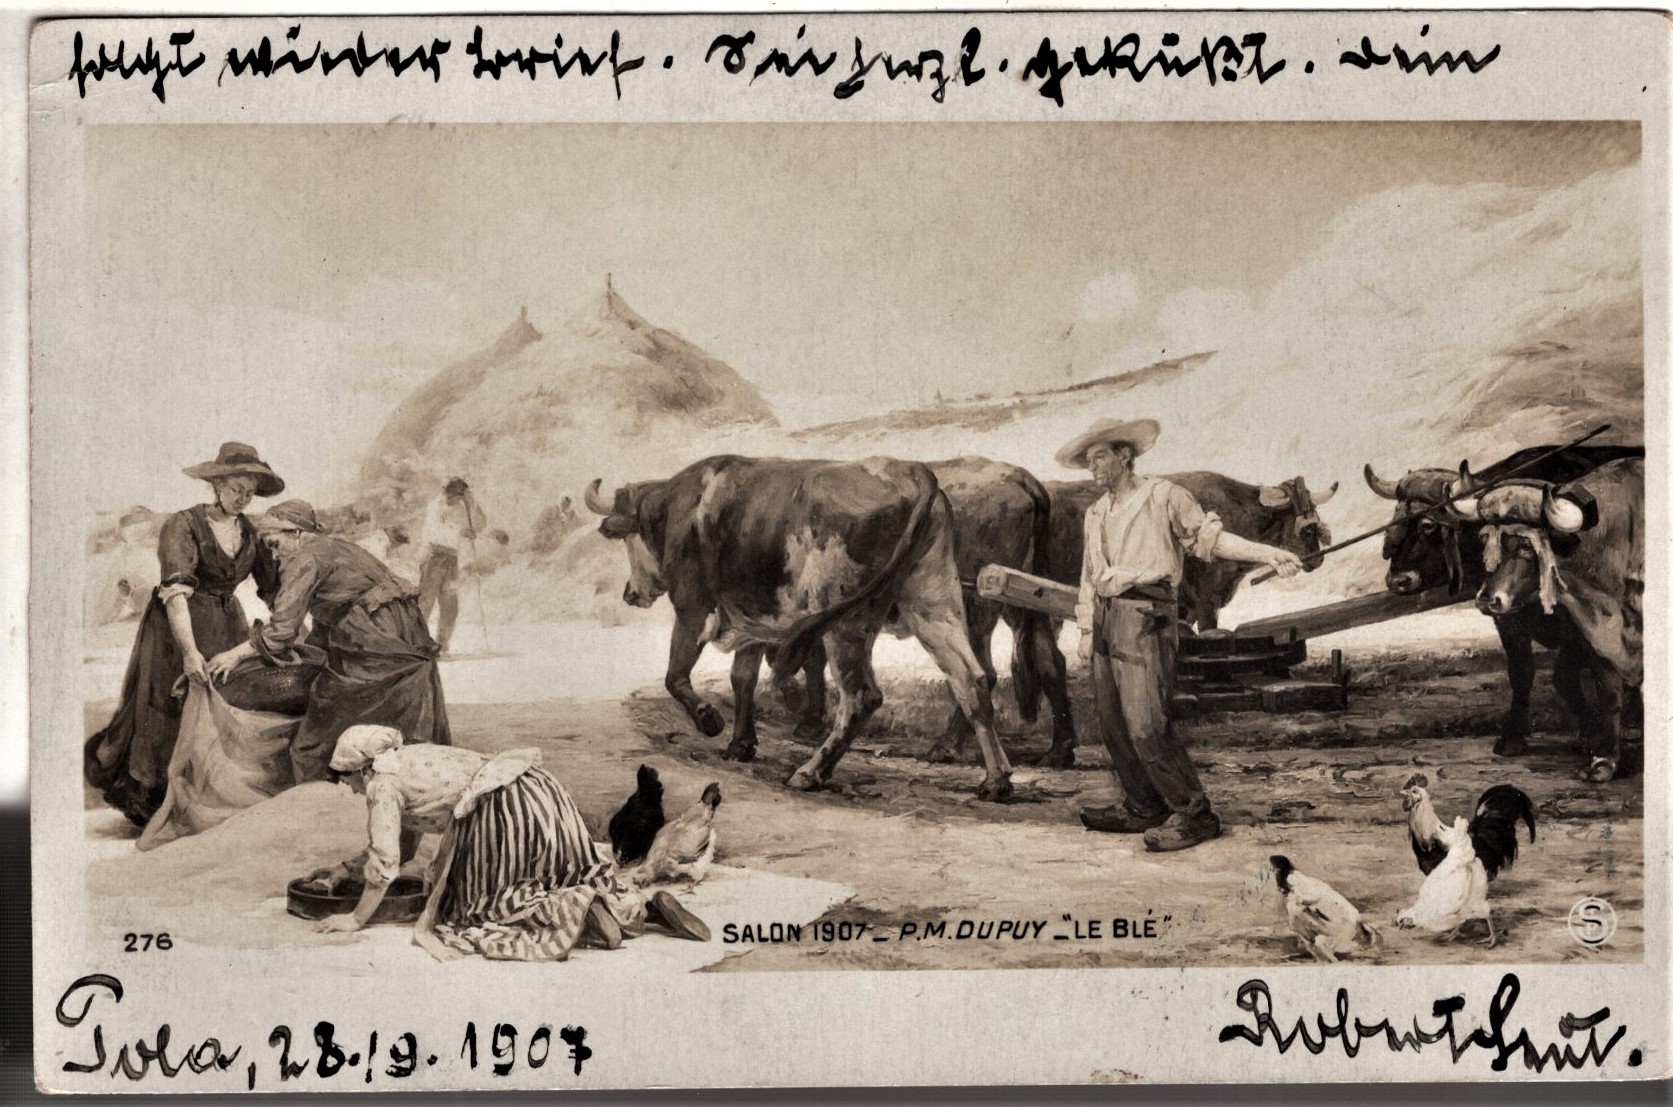 folgt wieder Brief. Sei herzl. geküßt. Dein
276
SALON 1907_ P.M.DUPUY_"LE BLÉ"
S
Pola, 28./9. 1907
Robert